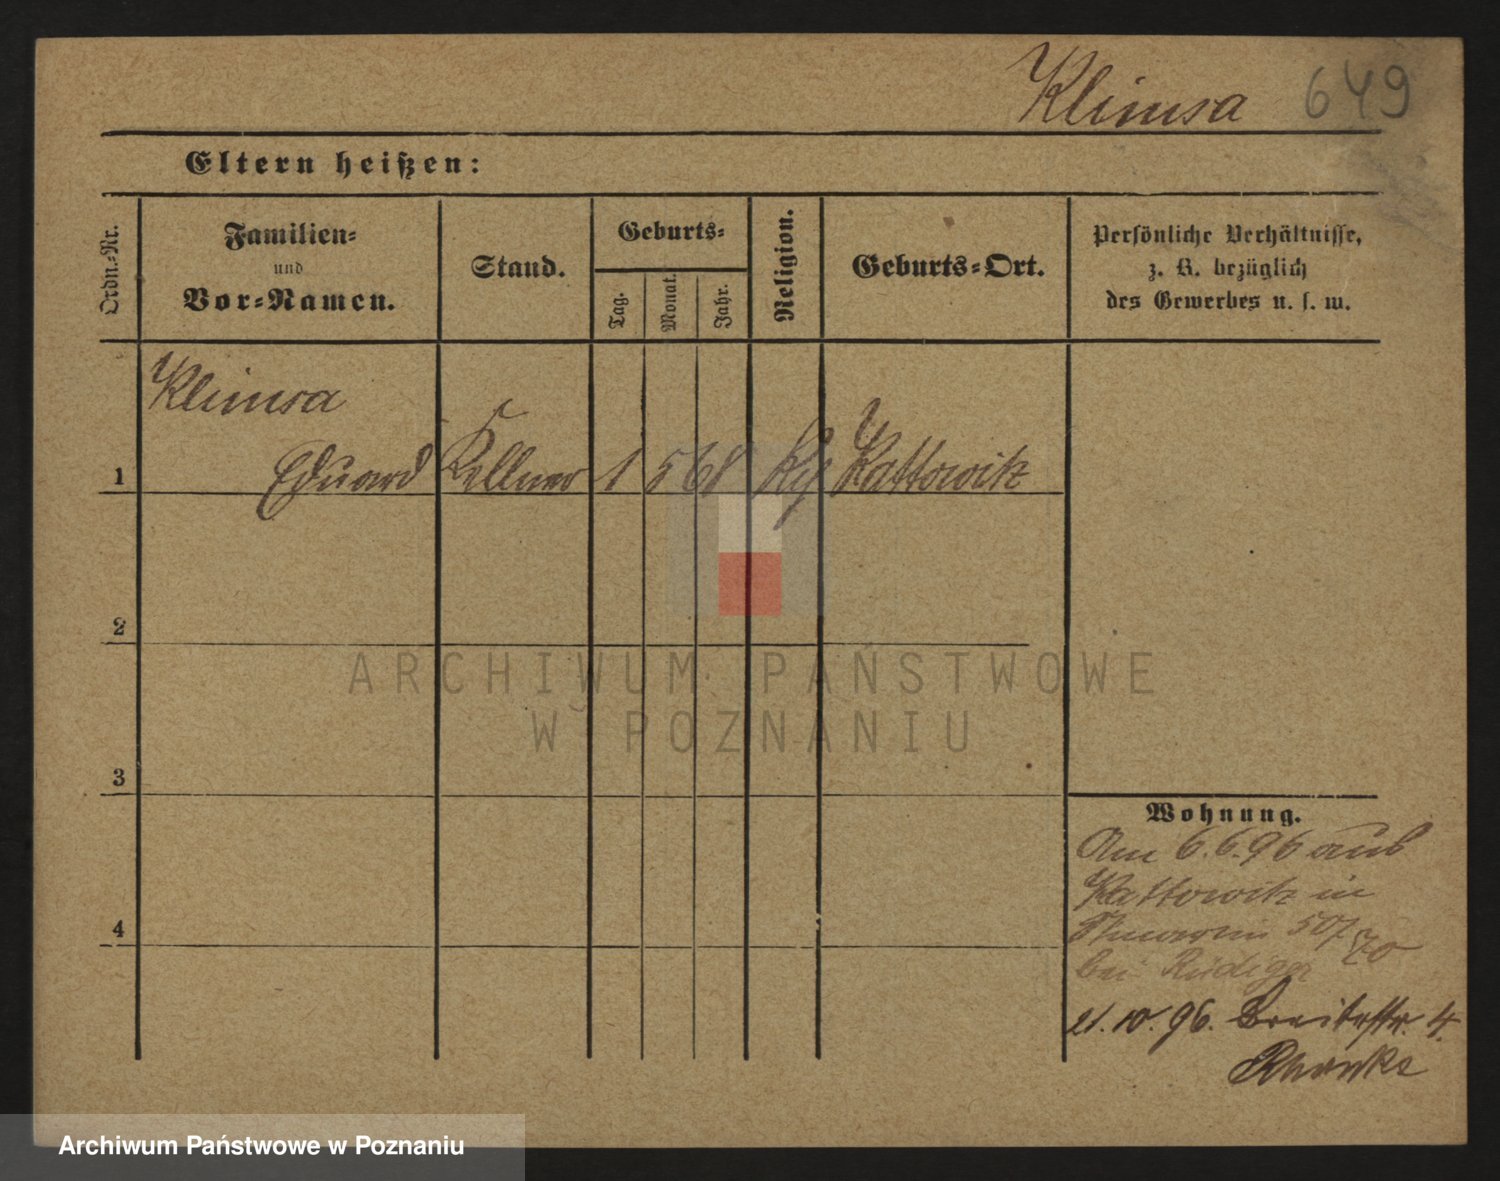 Klimsa 649
Eltern heißen:
Ordn.-Nr.
Familien-
und
Vor-Namen.
Stand.
Geburts-
Tag.
Monat.
Jahr.
Religion.
Geburts-Ort.
Persönliche Verhältnisse,
z. B. bezüglich
des Gewerbes u. s. w.
Klimsa
1 Eduard Kellner 1 5 68 Kattowitz
2
ARCHIWUM PAŃSTWOWE
W POZNANIU
3
Wohnung.
Am 6.6.96 aus
Kattowitz in
bei Rüdiger
4
21.10.96. Breitestr. 4.
Archiwum Państwowe w Poznaniu